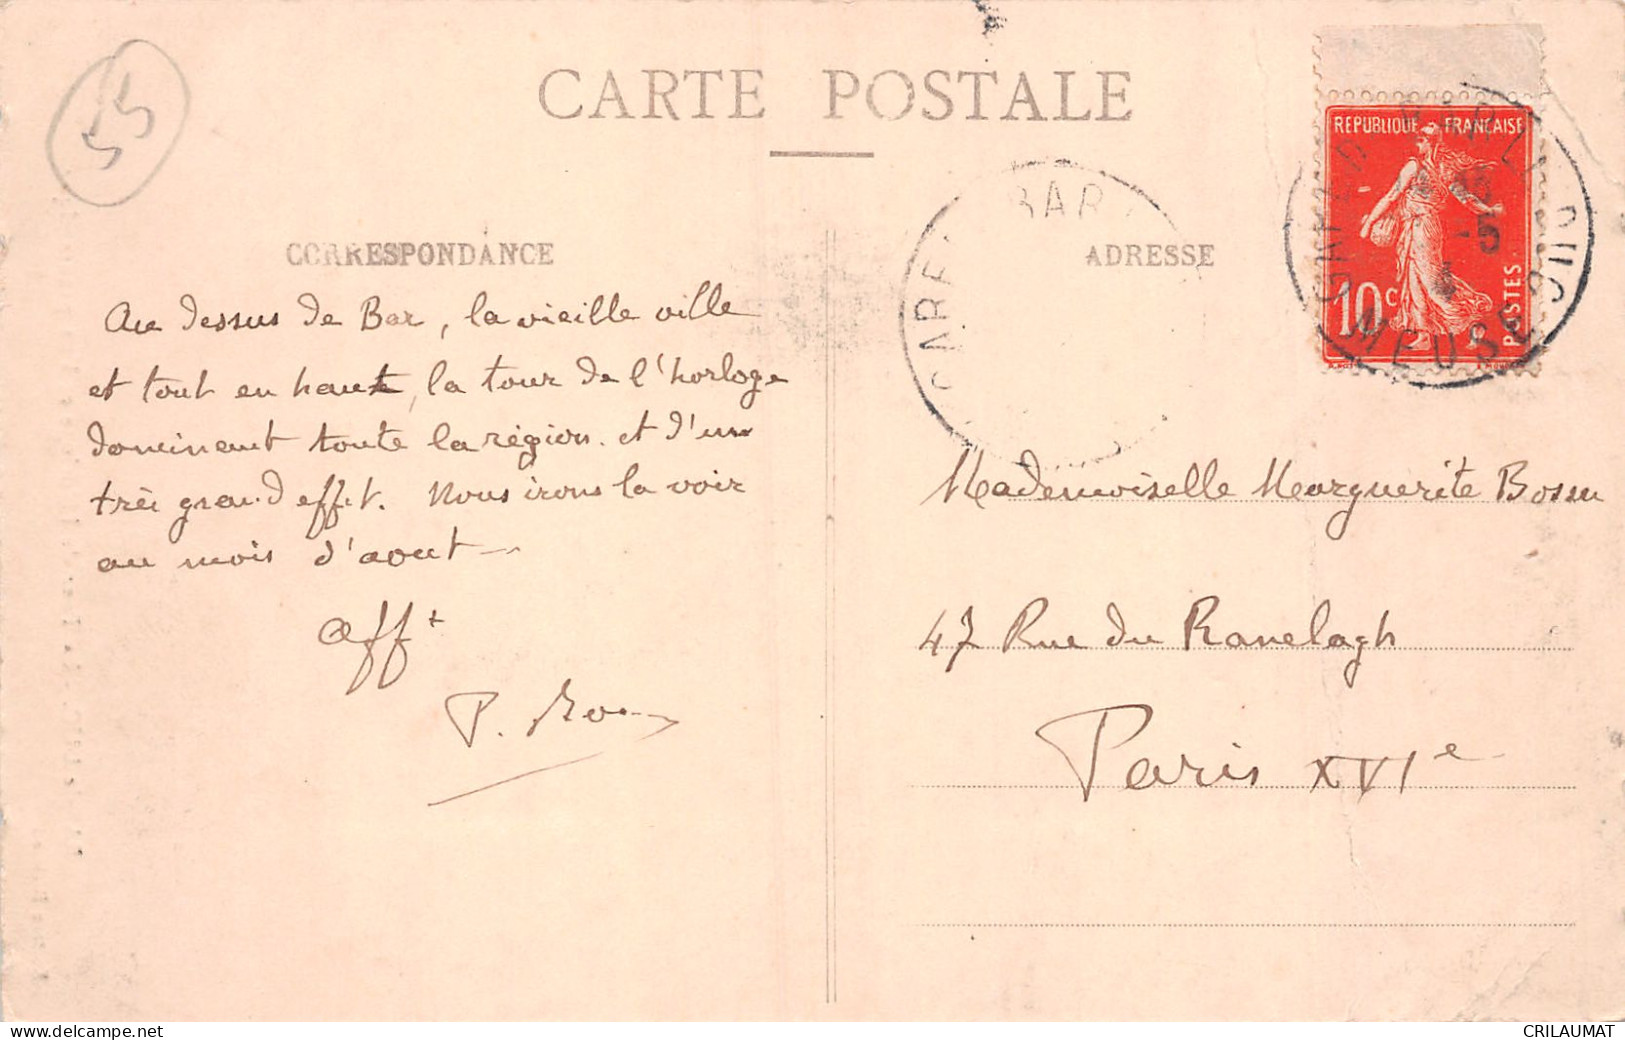 55
CARTE POSTALE
CORRESPONDANCE
Au dessus de Bar, la vieille ville
et tout en haut, la tour de l'horloge
dominent toute la région. et d'un
très grand effet. Nous irons la voir
au mois d'aout
aff t
P.
GARE BAR
ADRESSE
REPUBLIQUE FRANÇAISE
10 c
POSTES
MEUSE
Mademoiselle Marguerite Bossu
47 Rue du Ranelagh
Paris XVIe
https://www.delcampe.net
CRILAUMAT